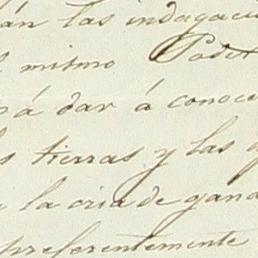 án las indagaci
l mismo Poder
rá dar á conoce
s tierras y las
e la cria de gana
preferentemente